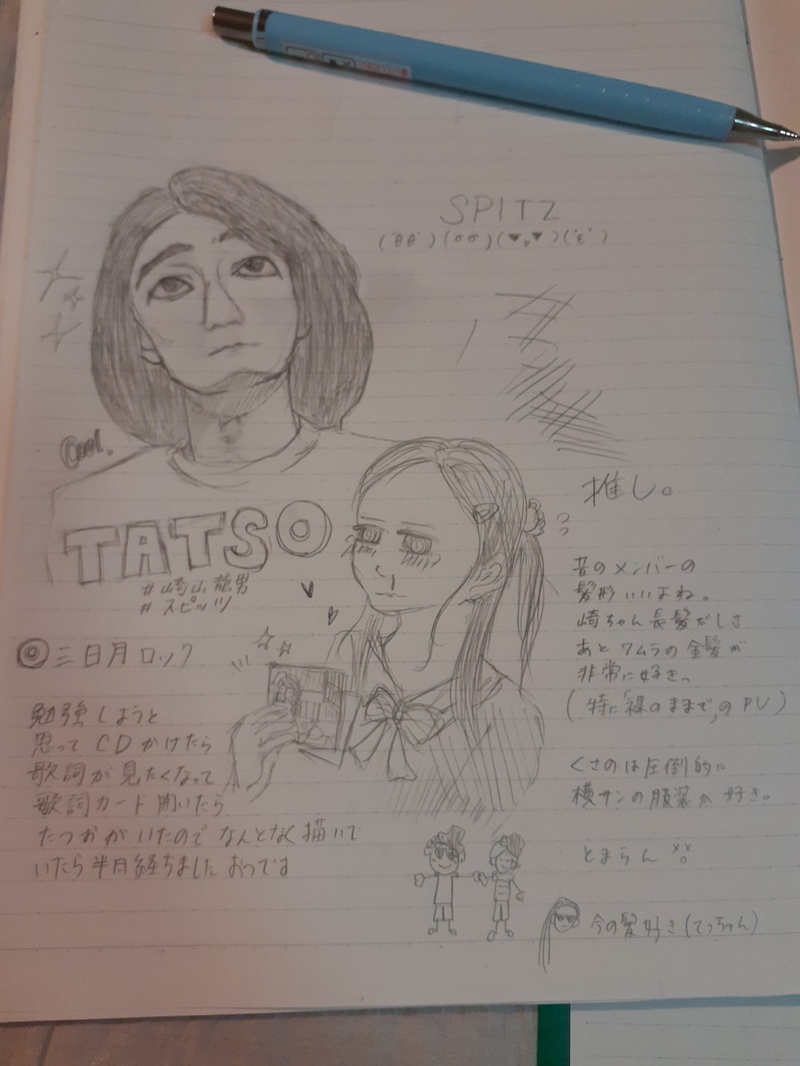 SPITZ
(ˊθθˋ)(σσ)(▼,,▼)(ˊεˋ)
Cool.
TATSO
#崎山龍男
#スピッツ
推し。
昔のメンバーの
髪形いいよね。
崎ちゃん長髪だしさ
あとタムラの金髪が
非常に好き。
(特に「裸のままで」のPV)
くさのは圧倒的に
横サンの服装が好き。
とまらん
今の髪好き(てっちゃん)
三日月ロック
勉強しようと
思ってCDかけたら
歌詞が見たくなって
歌詞カード開いたら
たつおがいたのでなんとなく描いて
いたら半月経ちましたおつです